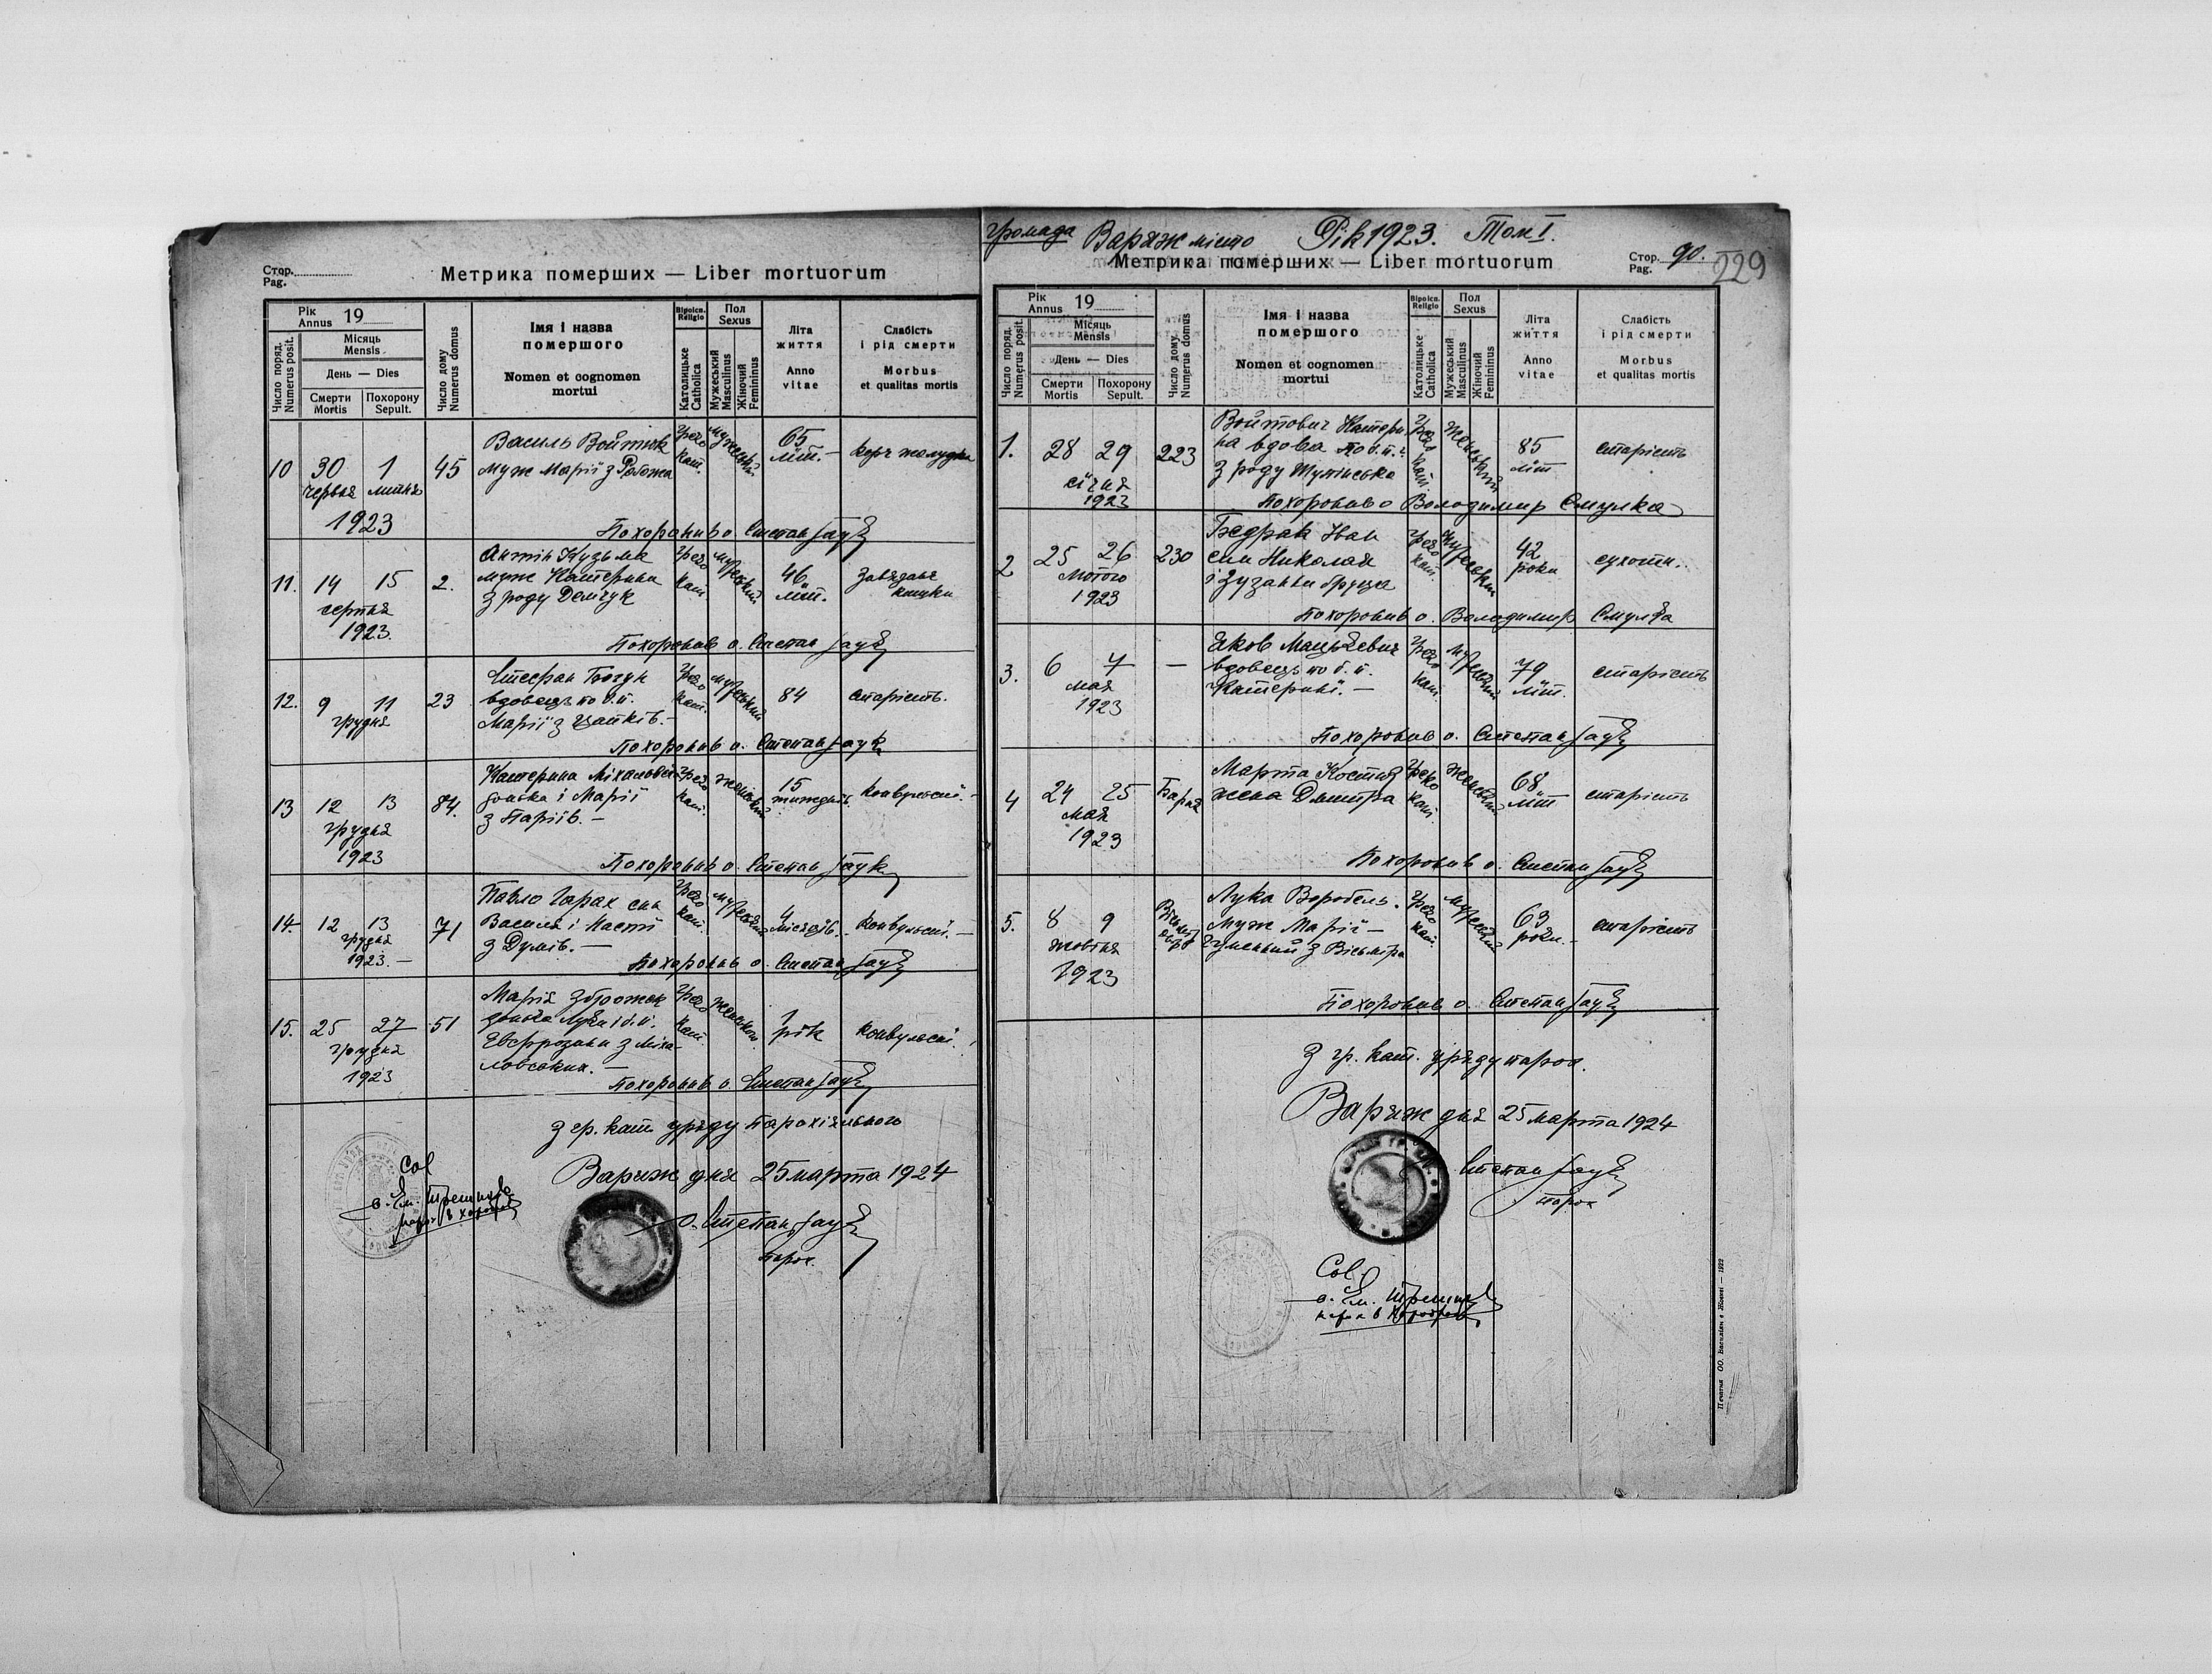 Стор.
Pag.
Метрика померших — Liber mortuorum
Рік
Annus 19
Місяць
Mensis
День — Dies
Смерти
Mortis
Похорону
Sepult.
Число поряд.
Numerus posit.
Число дому
Numerus domus
Імя і назва
помершого
Nomen et cognomen
mortui
Віроісп.
Religio
Католицьке
Catholica
Пол
Sexus
Мужеський
Masculinus
Жіночий
Femininus
Літа
життя
Anno
vitae
Слабість
і рід смерти
Morbus
et qualitas mortis
10 30 1 45 Василь Войтюк греко кат. мужеський 65 літ.
червня липня муж Марії з
1923
Похоронив о. Степан
11. 14 15 2. Антін Кузьма греко кат. мужеський 46 літ.
серпня муж Катерини
1923. з роду Демчук
Похоронив о. Степан
12. 9 11 23 Стефан Богун греко кат. мужеський 84 старість.
грудня вдовець по б. п.
Марії з Цапків. —
Похоронив о. Степан
13 12 13 84. Катерина греко кат. женський 15 тиждень конвульсиї. —
грудня донька і Марії
1923 з Паріїв. —
Похоронив о. Степан
14. 12 13 71 Павло Гарах син греко кат. мужеский 4 місяців. конвульсиї. —
грудня Василя і Насті
1923. — з Думів. —
Похоронив о. Степан
15. 25 27 51 Марія Зброжек греко кат. 1 рік конвульсиї.
грудня донька Луки і б. п.
1923 Евфрозини з Міха-
ловських. —
Похоронив о. Степан
з гр. кат. уряду парохіяльного
Варяж дня 25 марта 1924
о. Степан
парох.
Col
о. Ем.
громада Варяж місто Рік 1923. Том I.
Метрика померших — Liber mortuorum
Стор.
Pag. 90.
229
Рік
Annus 19
Місяць
Mensis
День — Dies
Смерти
Mortis
Похорону
Sepult.
Число поряд.
Numerus posit.
Число дому
Numerus domus
Імя і назва
помершого
Nomen et cognomen
mortui
Віроісп.
Religio
Католицьке
Catholica
Пол
Sexus
Мужеський
Masculinus
Жіночий
Femininus
Літа
життя
Anno
vitae
Слабість
і рід смерти
Morbus
et qualitas mortis
1. 28 29 223 Войтович Катери- греко кат. женський 85 літ старість
січня на вдова по б. п.
1923 з роду
Похоронив о Володимир Смулка
2 25 26 230 Бедрак Іван греко кат. мужеський 42 роки сухоти.
лютого син Николая
1923 і Зузанни
Похоронив о. Володимир Смулка
3. 6 7 — Яков Мацькевич греко кат. 79 літ. старість
мая вдовець по б. п.
1923 Катерині. —
Похоронив о. Степан
4 24 25 Марта Костиз греко кат. женський 68 літ старість
мая жена Дмитра
1923
Похоронив о. Степан
5. 8 9 Лука Воробель. греко кат. 63 роки. — старість
жовтня муж Марії —
1923
Похоронив о. Степан
з гр. кат. уряду парох.
Варяж дня 25 марта 1924
Степан
парох
Col
о. Ем.
Печатня ОО. Василіян в Жовкві — 1922